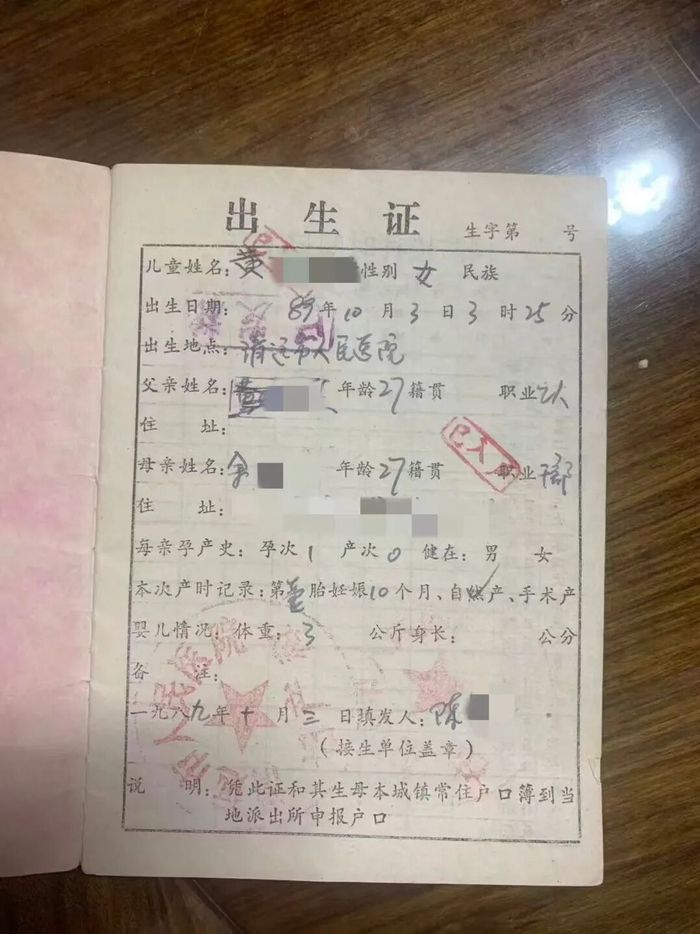 出生证
生字第 号
儿童姓名：黄 性别 女 民族
出生日期： 89年10月3日3时25分
出生地点：清远市人民医院
父亲姓名： 年龄27籍贯 职业
住 址：
已入
母亲姓名：余 年龄27籍贯 职业干部
住 址：
每亲孕产史：孕次1 产次0 健在：男 女
本次产时记录：第壹胎妊娠10个月、自然产、手术产
婴儿情况：体重：3 公斤身长： 公分
备 注：
一九八九年十月三日填发人：陈
（接生单位盖章）
说 明：凭此证和其生母本城镇常住户口簿到当
地派出所申报户口